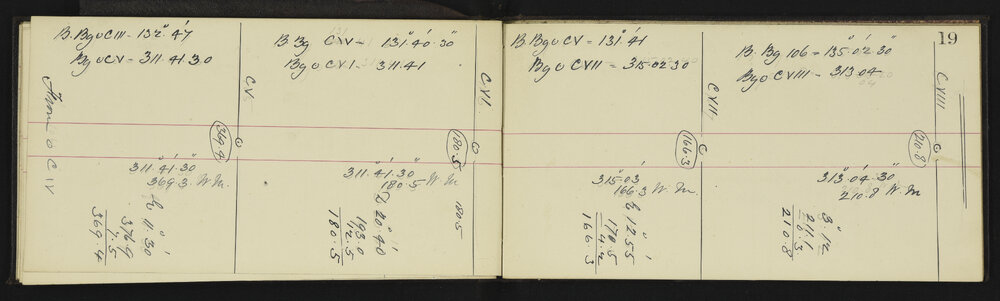 B. Bg ○ CIII - 132°. 47'
Bg ○ CV = 311.41.30
From ○ CIV
CV.
369.4
311°.41'.30"
369.3 W.M.
11°.30
376.9
7.5
369.4
B. Bg CIV - 131°.40'.30"
Bg ○ CVI - 311.41
CVI.
180.5
311°.41'.30"
180.5 W.M
180.5
20°.40'
193.0
12.5
180.5
B. Bg ○ CV = 131°.41'
Bg ○ CVII = 315.02.30
CVII.
166.3
315.03
166.3 W.M.
12°.55'
170.5
4.2
166.3
19
B. Bg 106 = 135°.02'.30"
Bg ○ CVIII - 313.04
CVIII.
210.8
313°.04'.30"
210.8 W.M
3°.12
211.1
0.3
210.8